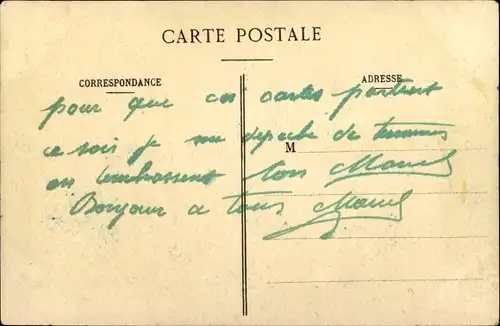 CARTE POSTALE
CORRESPONDANCE
ADRESSE
pour que ces cartes partent
ce soir je me dépêche de
M
en embrassant tous Marcel
Bonjour a tous Marcel